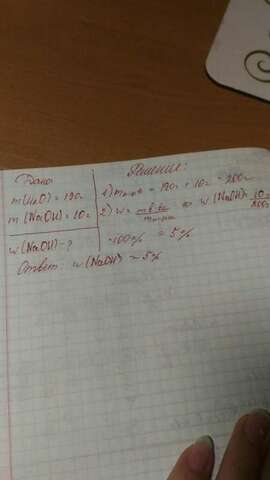 Дано
Решение:
m(H2O) = 190г
m(NaOH) = 10г
w(NaOH) - ?
1) mр-ра = 190г + 10г = 200г
2) w = mв-ва / mр-ра => w(NaOH) = 10 / 200г
·100% = 5%
Ответ: w(NaOH) = 5%